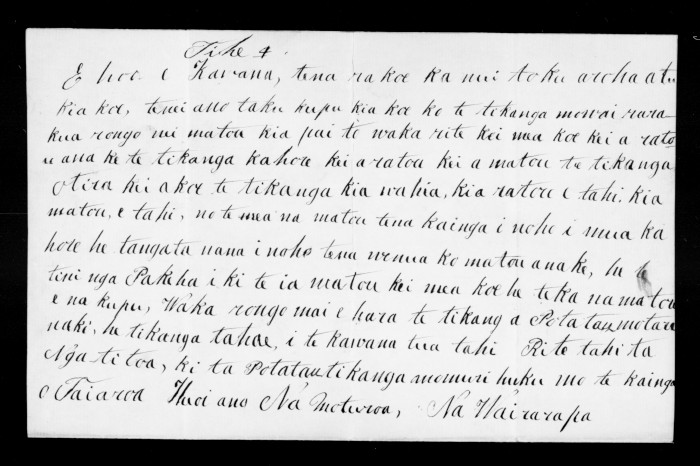 Tihe 4.
E hoa e Kawana, tena ra koe ka nui toku aroha atu
kia koe, tenei ano taku kupu kia koe ko te tikanga mo wairara
kua rongo mi matou kia pai te waka rite kei mea koe kei a rato
u ana ke te tikanga kahore kei aratou kei a matou te tikanga
Otira kei akoe te tikanga kia wahia, kia ratou e tahi. kia
matou, e tahi, no te mea na matou tena kainga i noho i mua ka
hore he tangata nana i noho tena wenua ko matou anake, he
tini nga Pakeha i ki te ia matou kei mea koe he teka na matou
e na kupu, Waka rongo mai e hara te tikang a Potatau motare
naki, he tikanga tahae, i te kawana tua tahi Rite tahi ta
Ngatitoa, ki ta Potatau tikanga mo muri huku mo te kainga
o Taiaroa Heoi ano Na Moturoa, Na Wairarapa